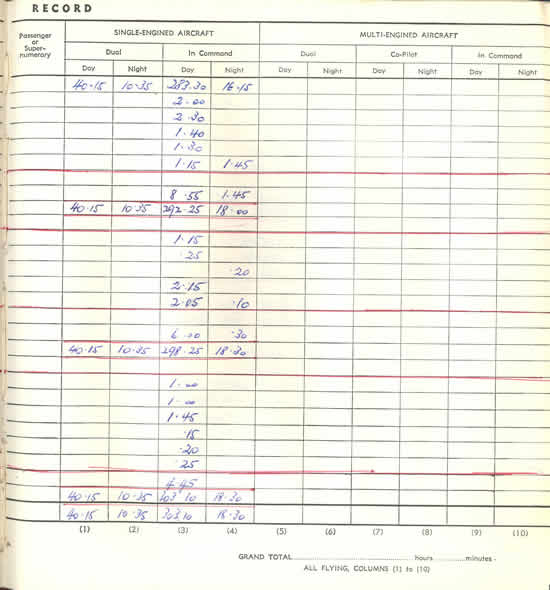 RECORD
Passenger or Super-numerary SINGLE-ENGINED AIRCRAFT MULTI-ENGINED AIRCRAFT
Dual In Command Dual Co-Pilot In Command
Day Night Day Night Day Night Day Night Day Night
40·15 10·35 283·30 16·15
2·00
2·30
1·40
1·30
1·15 1·45
8·55 1·45
40·15 10·35 292·25 18·00
1·15
·25
·20
2·15
2·05 ·10
6·00 ·30
40·15 10·35 298·25 18·30
1·00
1·00
1·45
·15
·20
·25
4·45
40·15 10·35 303·10 18·30
40·15 10·35 303·10 18·30
(1) (2) (3) (4) (5) (6) (7) (8) (9) (10)
GRAND TOTAL hours minutes
ALL FLYING, COLUMNS (1) to (10)